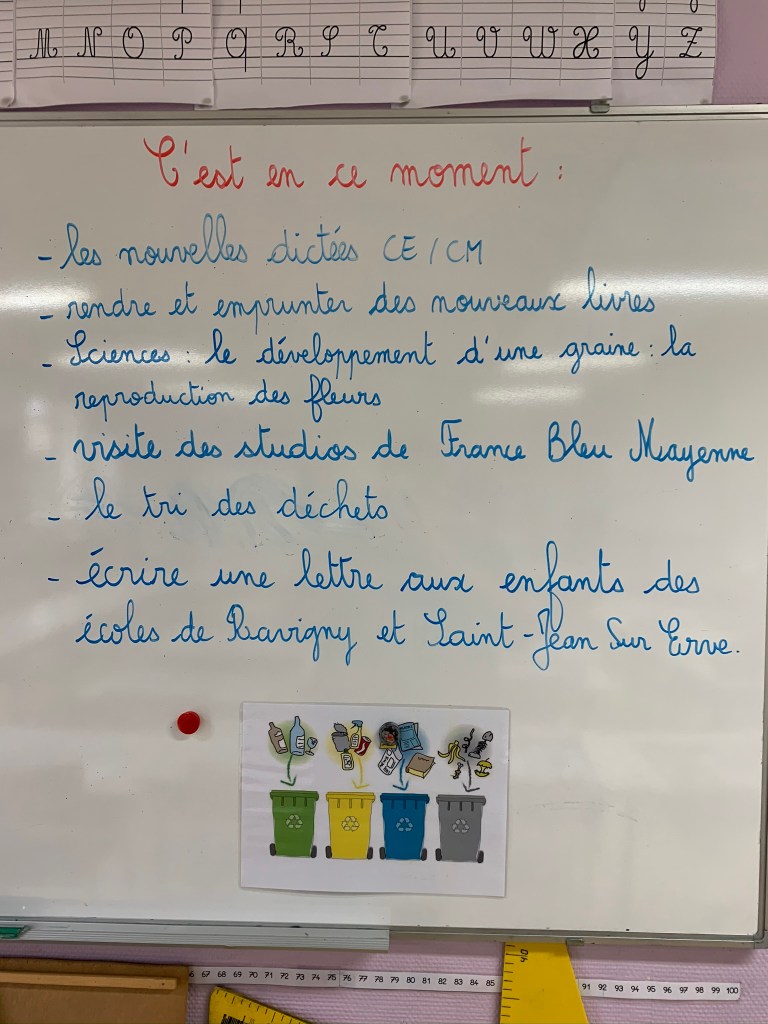 M N O P Q R S T U V W X Y Z
C'est en ce moment :
- les nouvelles dictées CE / CM
- rendre et emprunter des nouveaux livres
- Sciences : le développement d'une graine : la
reproduction des fleurs
- visite des studios de France Bleu Mayenne
- le tri des déchets
- écrire une lettre aux enfants des
écoles de Ravigny et Saint-Jean Sur Erve.
66 67 68 69 70 71 72 73 74 75 76 77 78 79 80 81 82 83 84 85 91 92 93 94 95 96 97 98 99 100
40